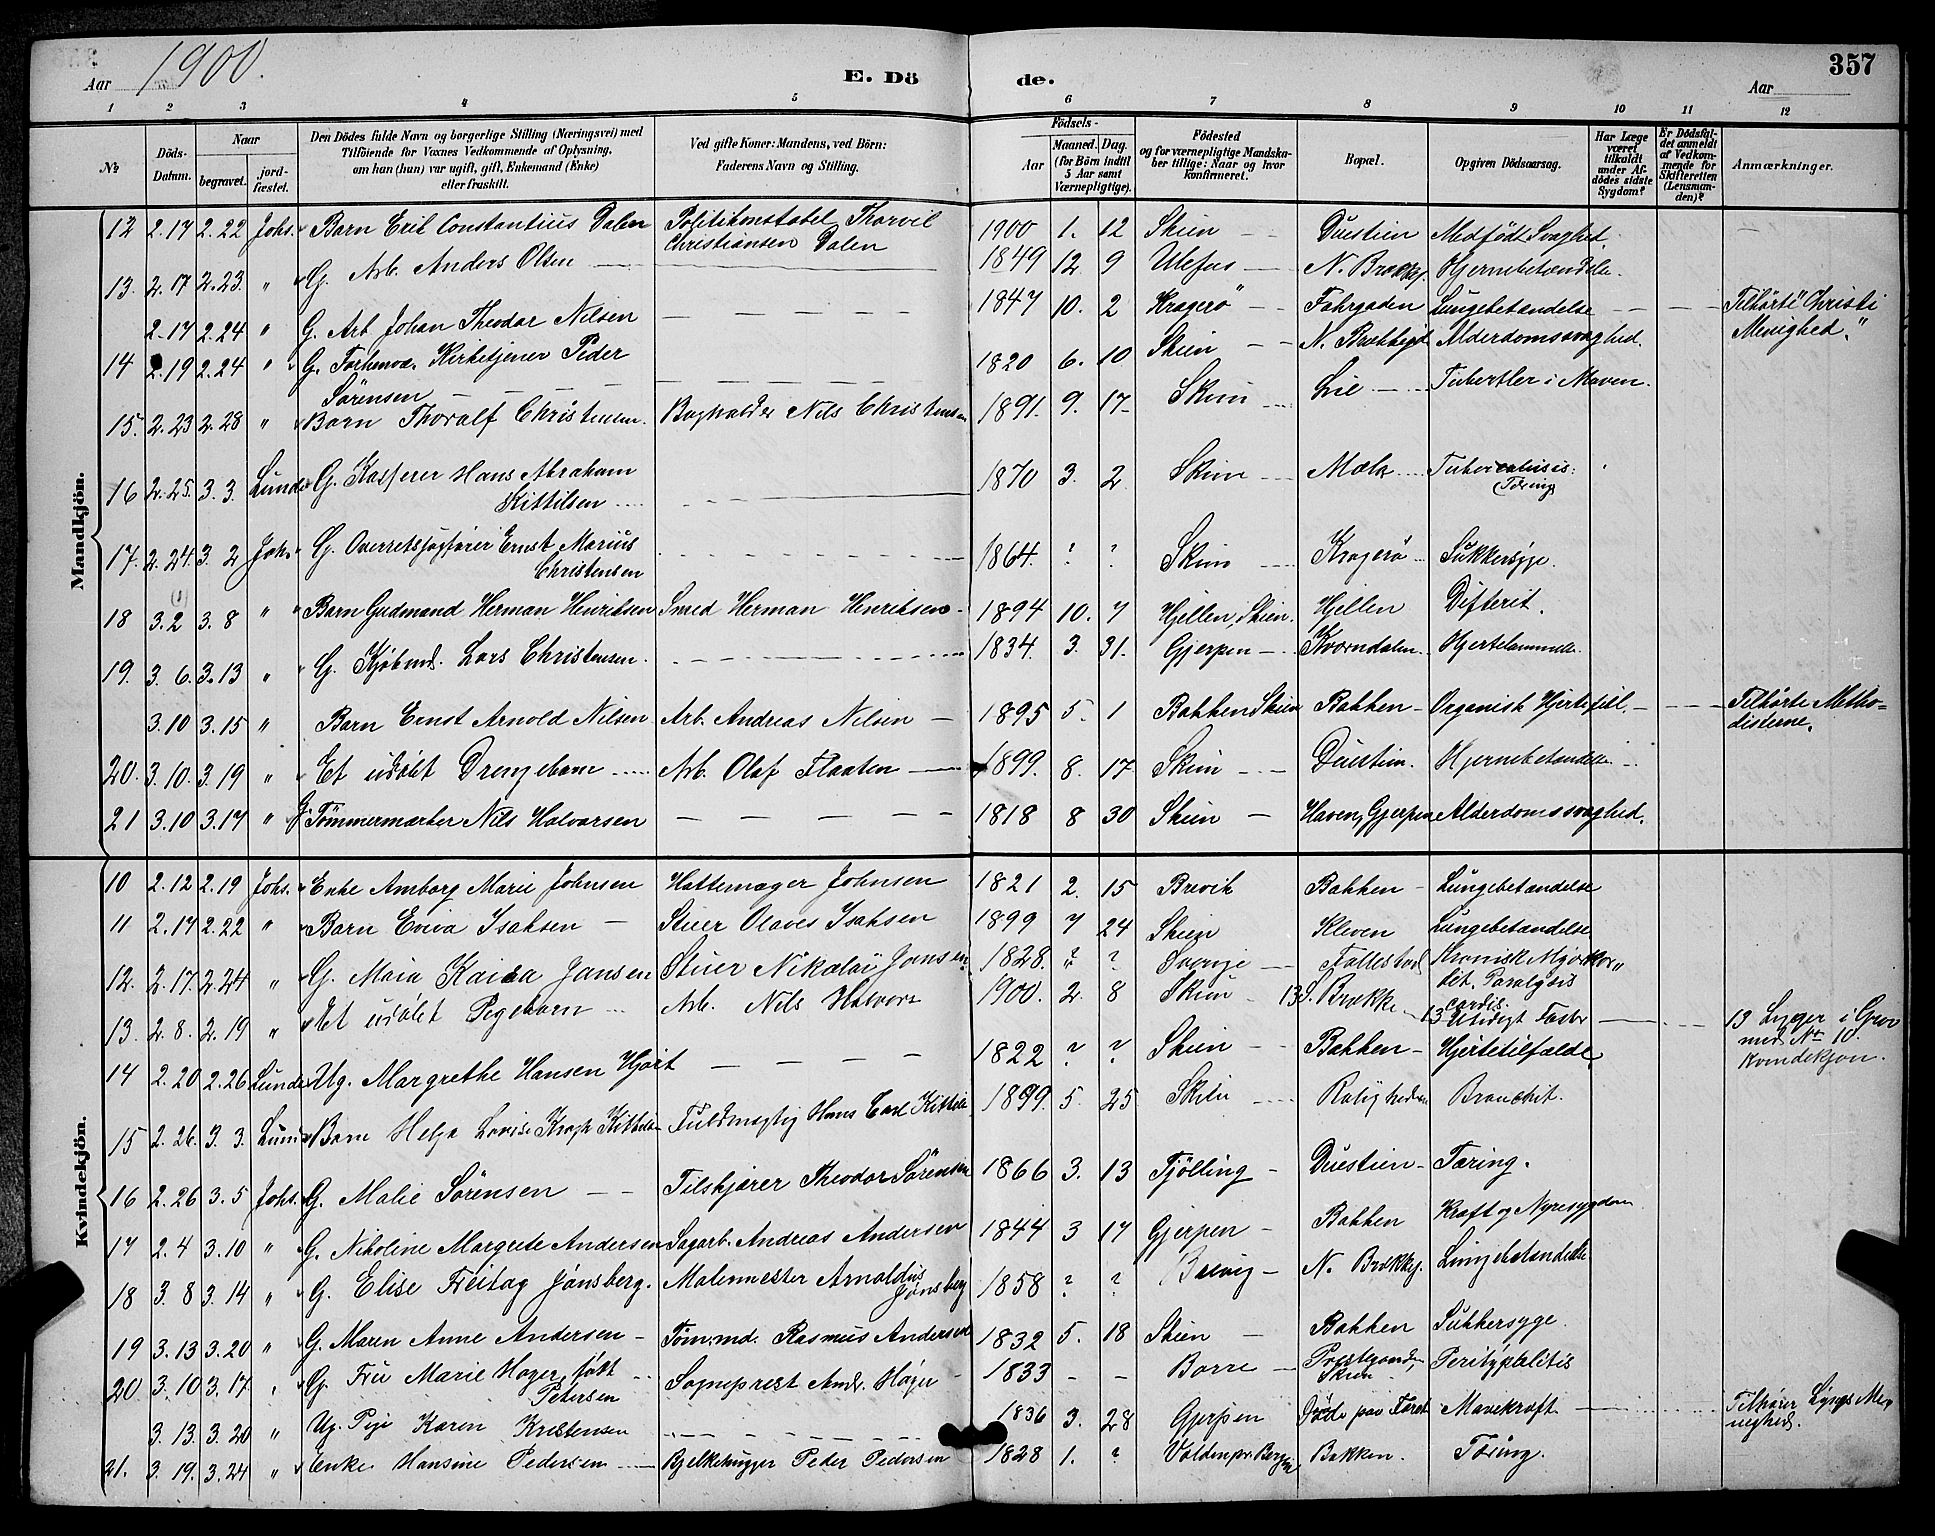 Aar 1900. E. Dö de. Aar 357
1 2 3 4 5 6 7 8 9 10 11 12
№
Döds-Datum.
Naar
begravet.
jord-fæstet.
Den Dödes fulde Navn og borgerlige Stilling (Næringsvei) med
Tilföiende for Voxnes Vedkommende af Oplysning,
om han (hun) var ugift, gift, Enkemand (Enke)
eller fraskilt.
Ved gifte Koner: Mandens, ved Börn:
Faderens Navn og Stilling.
Födsels-
Aar
Maaned. Dag.
(for Börn indtil
5 Aar samt
Værnepligtige).
Födested
og for værnepligtige Mandska-
ber tillige: Naar og hvor
konfirmeret.
Bopæl.
Opgiven Dödsaarsag.
Har Læge
været
tilkaldt
under Af-
dödes sidste
Sygdom?
Er Dödsfal-
det anmeldt
af Vedkom-
mende for
Skifteretten
(Lensman-
den)?
Anmærkninger.
Mandkjön.
12 2.17 2.22 Johs. Barn Eril Constantius Dalen Politikonstabel Thorvil Christiansen Dalen 1900 1. 12 Skien Duestien Medfödt Svaghed.
13. 2.17 2.23 " G. Arb. Anders Olsen 1849 12. 9 Ulefos N. Brække. Hjernebetændelse.
2.17 2.24 " G. Arb Johan Theodor Nilsen 1847 10. 2 Kragerö Fahrgaden Lungebetændelse Tilhörte "Christi Menighed."
14 2.19 2.24 " G. Forhenvæ. Kirketjener Peder Sörensen 1820 6. 10 Skien Alderdomssvaghed.
15. 2.23 2.28 " Barn Thoralf Christensen. Bogholder Nils Christensen 1891. 9. 17 Skien Lie Tuberkler i Maven.
16 2.25. 3.3. Lunde G. Kasserer Hans Abraham Kittilsen 1870 3. 2 Skien Mæla Tuberculosis: (Tæring)
17. 2.24. 3.2 Joh. G. Overretssagfører Ernst Marius Christensen 1864. ? ? Skien Kragerø Sukkersyge.
18 3.2 3.8 " Barn Gudmund Herman Henriksen Smed Herman Henriksen 1894 10. 7 Hjellen, Skien. Hjellen Difterit.
19. 3.6. 3.13 " G. Kjøbmd. Lars Christensen. 1834. 3. 31. Gjerpen Kværndalen. Hjertelammelse.
3.10 3.15 " Barn Ernst Arnold Nilsen Arb. Andreas Nilsen 1895 5. 1 Bakken Skien Bakken Organisk Hjertefeil. Tilhørte Metho=disterne.
20. 3.10. 3.19 " Et udøbt Drengebarn Arb. Olaf Flaaten 1899. 8. 17 Skien Duestien. Hjernebetændelse
21 3.10 3.17 " G. Tömmermærker Nils Halvorsen 1818 8 30 Skien Haven, Gjerpen Alderdomssvaghed.
Kvindekjön.
10 2.12 2.19 Johs. Enke Amborg Marie Johnsen Hattemager Johnsen 1821 2. 15 Brevik Bakken Lungebetændelse
11 2.17 2.22 " Barn Isaksen Stuer Olaves Isaksen 1899 7 24 Skien Kleven Lungebetændelse
12. 2.17. 2.24 " G. Maia Kaisa Jansen Stuer Nikolai Jansen 1828. ? ? Sverige Follestad Kronisk Myokardit. Paralysis cordis.
13. 2.8. 2.19 " Et udøbt Pigebarn Arb. Nils Halvors 1900. 2. 8 Skien 13 S. Brække 13 Utidigt Foster 13 Ligger i Grav med № 10. Kvindekjøn.
14 2.20 2.26 Lunde Ug. Margrethe Hansen Hjort 1822 ? ? Skien Bakken Hjertetilfælde
15 2.26. 3.3. Lund Barn Helga Lovise Krogh Kittilsen Fuldmægtig Hans Carl Kittils 1899. 5. 25 Skien Roligheden Bronchit.
16 2.26 3.5 Johs. G. Malie Sörensen Tilskjærer Theodor Sörensen 1866 3. 13 Tjölling Duestien Tæring.
17 2.4 3.10 " G. Nikoline Margrete Andersen Sagarb. Andreas Andersen 1844 3 17 Gjerpen Bakken Kræft og Nyresygdom
18 3.8 3.14 " G. Elise Freitag Jønsberg. Malermester Arnoldus Jønsberg 1858 ? ? Brevig N. Brække. Lungebetændelse
19 3.13 3.20 " G. Maren Anne Andersen Tömmd. Rasmus Andersen 1832 5. 18 Skien Bakken Sukkersyge.
20 3.10 3.17 " G. Fru Marie Høyer, født Petersen Sogneprest Andr. Høyer 1833 Borre Skien Perityphlitis
3.13. 3.20 " Ug. Pige Karen Kristensen 1836 3. 28 Gjerpen Døde paa Mavekræft Tilhører Menighed.
21. 3.19. 3.24 " Enke Hansine Pedersen Bjelkehugger Peder Pedersen 1828 1. ? Bakken. Tæring.